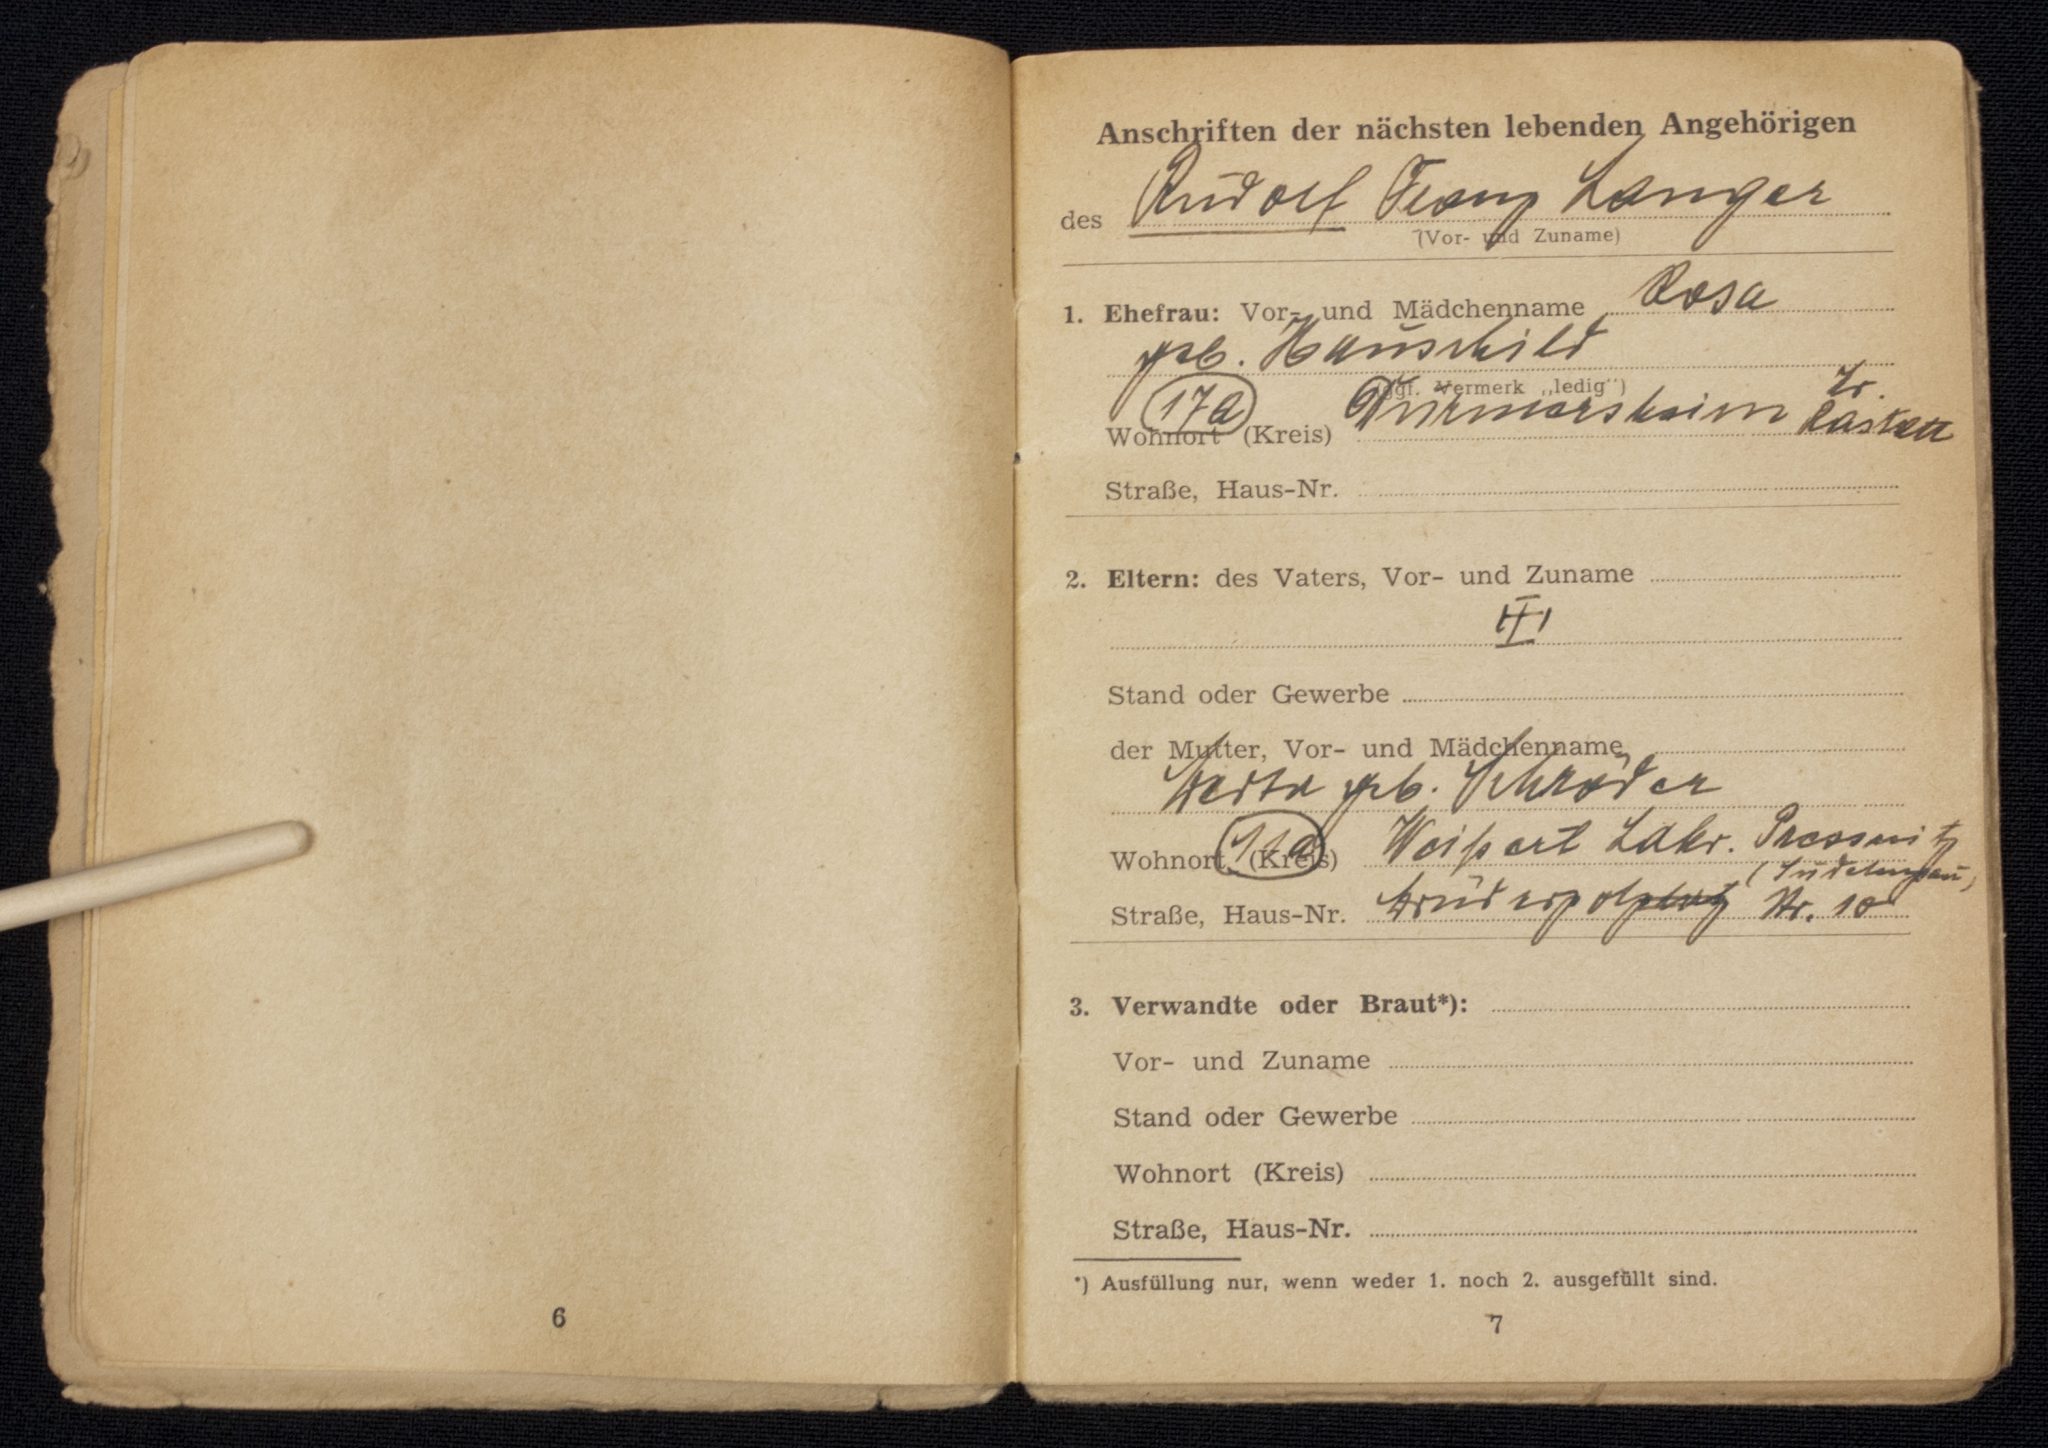 Anschriften der nächsten lebenden Angehörigen
des Rudolf Franz Langer
(Vor- und Zuname)
1. Ehefrau: Vor- und Mädchenname Rosa
geb. Hauschild
(ggf. Vermerk „ledig")
Wohnort (Kreis) 17a Durmersheim Kr. Rastatt
Straße, Haus-Nr.
2. Eltern: des Vaters, Vor- und Zuname
Stand oder Gewerbe
der Mutter, Vor- und Mädchenname
geb. Schröder
Wohnort (Kreis) 11a Weipert Ldkr. Pressnitz
(Sudetengau)
Straße, Haus-Nr. Nr. 10
3. Verwandte oder Braut*):
Vor- und Zuname
Stand oder Gewerbe
Wohnort (Kreis)
Straße, Haus-Nr.
*) Ausfüllung nur, wenn weder 1. noch 2. ausgefüllt sind.
6
7